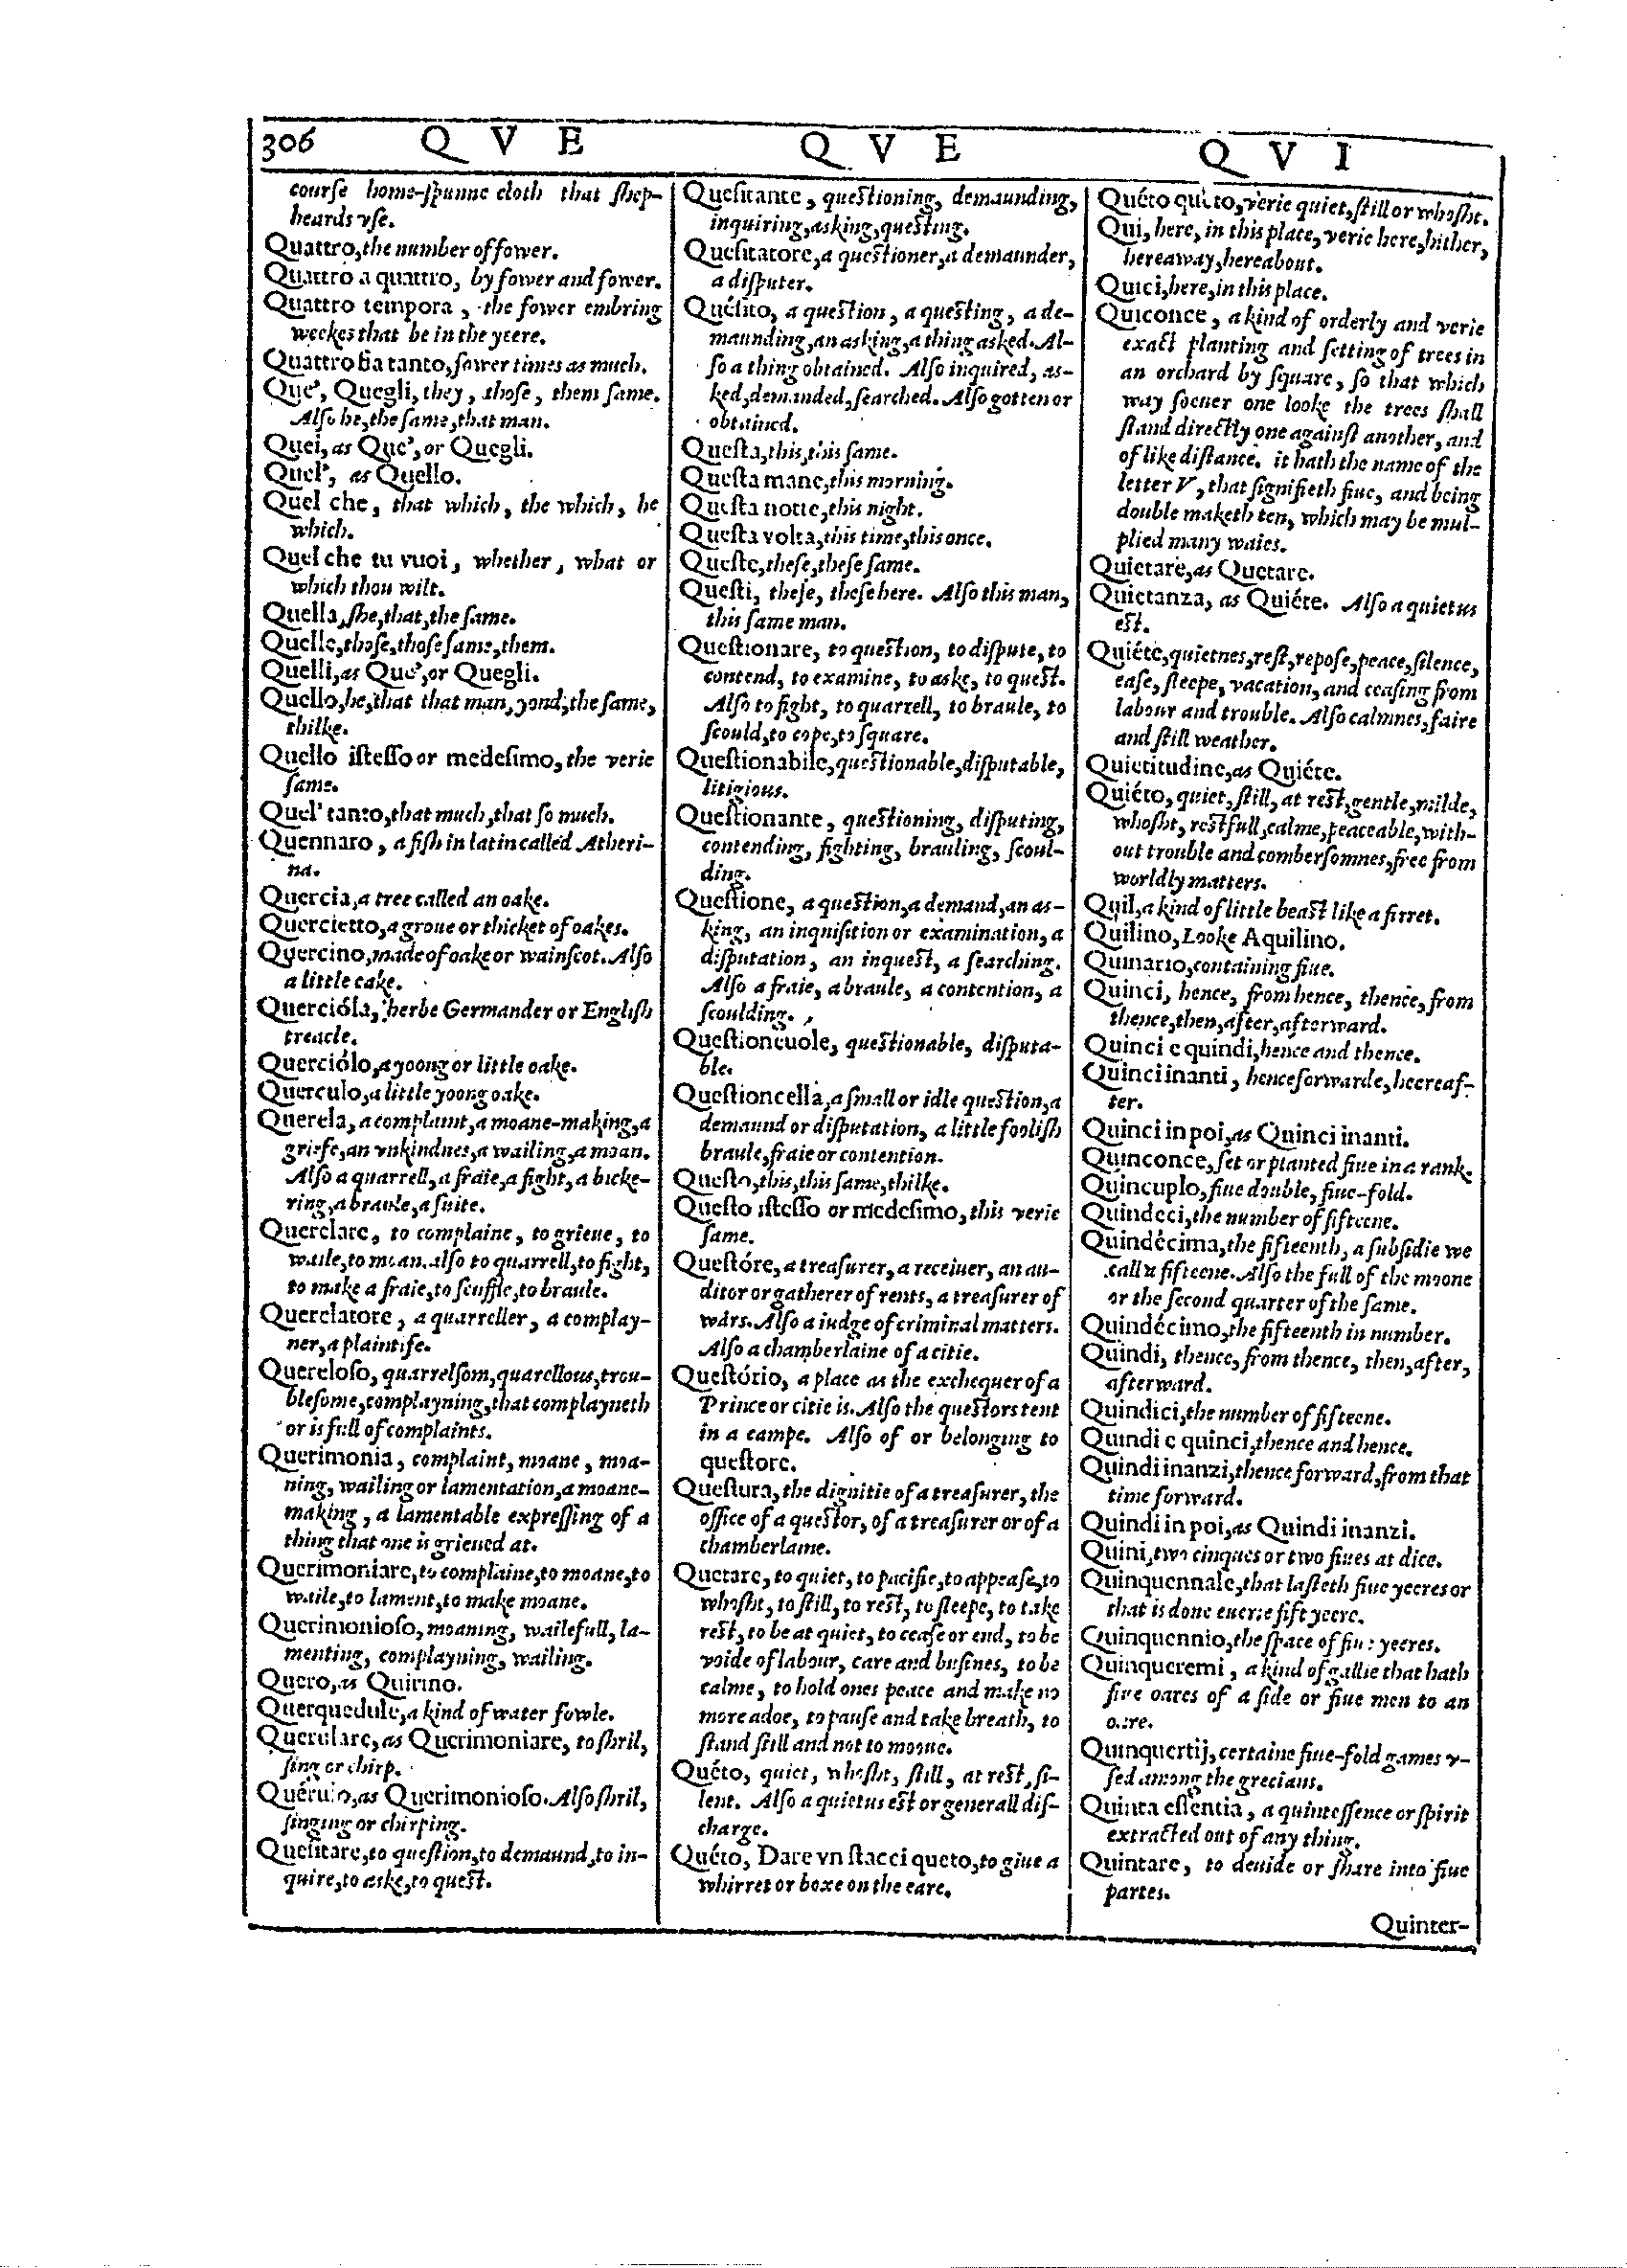 306 Q V E Q V E Q V I
courſe home-ſpunne cloth that ſhep-
heards vſe.
Quattro, the number of fower.
Quattro a quattro, by fower and fower.
Quattro tempora, the fower embring
weekes that be in the yeere.
Quattro tanto, fower times as much.
Que', Quegli, they, thoſe, them ſame.
Alſo he, the ſame, that man.
Quei, as Que', or Quegli.
Quel', as Quello.
Quel che, that which, the which, he
which.
Quel che tu vuoi, whether, what or
which thou wilt.
Quella, ſhe, that, the ſame.
Quelle, thoſe, thoſe ſame, them.
Quelli, as Que', or Quegli.
Quello, he, that that man, yond, the ſame,
thilke.
Quello iſteſſo or medeſimo, the verie
ſame.
Quel' tanto, that much, that ſo much.
Quennaro, a fiſh in latin called Atheri-
na.
Quercia, a tree called an oake.
Quercietto, a groue or thicket of oakes.
Quercino, made of oake or wainſcot. Alſo
a little cake.
Quercióla, herbe Germander or Engliſh
treacle.
Querciólo, a yoong or little oake.
Querculo, a little yoong oake.
Querela, a complaint, a moane-making, a
griefe, an vnkindnes, a wailing, a moan.
Alſo a quarrell, a fraie, a fight, a bicke-
ring, a braule, a ſuite.
Querelare, to complaine, to grieue, to
waile, to moan. alſo to quarrell, to fight,
to make a fraie, to ſcuffle, to braule.
Querelatore, a quarreller, a complay-
ner, a plaintife.
Quereloſo, quarrelſom, quarellous, trou-
bleſome, complayning, that complayneth
or is full of complaints.
Querimonia, complaint, moane, moa-
ning, wailing or lamentation, a moane-
making, a lamentable expreſſing of a
thing that one is grieued at.
Querimoniare, to complaine, to moane, to
waile, to lament, to make moane.
Querimonioſo, moaning, wailefull, la-
menting, complayning, wailing.
Quero, as Quirino.
Querquedule, a kind of water fowle.
Querulare, as Querimoniare, to ſhril,
ſing or chirp.
Quérulo, as Querimonioſo. Alſo ſhril,
ſinging or chirping.
Queſitare, to queſtion, to demaund, to in-
quire, to aske, to queſt.
Queſitante, queſtioning, demaunding,
inquiring, asking, queſting.
Queſitatore, a queſtioner, a demaunder,
a diſputer.
Quéſito, a queſtion, a queſting, a de-
maunding, an asking, a thing asked. Al-
ſo a thing obtained. Alſo inquired, as-
ked, demanded, ſearched. Alſo gotten or
obtained.
Queſta, this, this ſame.
Queſta mane, this morning.
Queſta notte, this night.
Queſta volta, this time, this once.
Queſte, theſe, theſe ſame.
Queſti, theſe, theſe here. Alſo this man,
this ſame man.
Queſtionare, to queſtion, to diſpute, to
contend, to examine, to aske, to queſt.
Alſo to fight, to quarrell, to braule, to
ſcould, to cope, to ſquare.
Queſtionabile, queſtionable, diſputable,
litigious.
Queſtionante, queſtioning, diſputing,
contending, fighting, brauling, ſcoul-
ding.
Queſtione, a queſtion, a demand, an as-
king, an inquiſition or examination, a
diſputation, an inqueſt, a ſearching.
Alſo a fraie, a braule, a contention, a
ſcoulding.
Queſtioneuole, queſtionable, diſputa-
ble.
Queſtioncella, a ſmall or idle queſtion, a
demaund or diſputation, a little fooliſh
braule, fraie or contention.
Queſto, this, this ſame, thilke.
Queſto iſteſſo or medeſimo, this verie
ſame.
Queſtóre, a treaſurer, a receiuer, an au-
ditor or gatherer of rents, a treaſurer of
wars. Alſo a iudge of criminal matters.
Alſo a chamberlaine of a citie.
Queſtório, a place as the exchequer of a
Prince or citie is. Alſo the queſtors tent
in a campe. Alſo of or belonging to
queſtore.
Queſtura, the dignitie of a treaſurer, the
office of a queſtor, of a treaſurer or of a
chamberlaine.
Quetare, to quiet, to pacifie, to appeaſe, to
whoſht, to ſtill, to reſt, to ſleepe, to take
reſt, to be at quiet, to ceaſe or end, to be
voide of labour, care and buſines, to be
calme, to hold ones peace and make no
more adoe, to pauſe and take breath, to
ſtand ſtill and not to mooue.
Quéto, quiet, whoſht, ſtill, at reſt, ſi-
lent. Alſo a quietus eſt or generall diſ-
charge.
Quéto, Dare vn ſtacci queto, to giue a
whirret or boxe on the eare.
Quéto quéto, verie quiet, ſtill or whoſht.
Qui, here, in this place, verie here, hither,
hereaway, hereabout.
Quici, here, in this place.
Quiconce, a kind of orderly and verie
exact planting and ſetting of trees in
an orchard by ſquare, ſo that which
way ſoeuer one looke the trees ſhall
ſtand directly one againſt another, and
of like diſtance. it hath the name of the
letter V, that ſignifieth fiue, and being
double maketh ten, which may be mul-
plied many waies.
Quietare, as Quetare.
Quietanza, as Quiéte. Alſo a quietus
eſt.
Quiéte, quietnes, reſt, repoſe, peace, ſilence,
eaſe, ſleepe, vacation, and ceaſing from
labour and trouble. Alſo calmnes, faire
and ſtill weather.
Quietitudine, as Quiéte.
Quiéto, quiet, ſtill, at reſt, gentle, milde,
whoſht, reſtfull, calme, peaceable, with-
out trouble and comberſomnes, free from
worldly matters.
Quil, a kind of little beaſt like a firret.
Quilino, Looke Aquilino.
Quinario, containing fiue.
Quinci, hence, from hence, thence, from
thence, then, after, afterward.
Quinci e quindi, hence and thence.
Quinci inanti, henceforwarde, heereaf-
ter.
Quinci in poi, as Quinci inanti.
Quinconce, ſet or planted fiue in a rank.
Quincuplo, fiue double, fiue-fold.
Quindeci, the number of fifteene.
Quindécima, the fifteenth, a ſubſidie we
call a fifteene. Alſo the full of the moone
or the ſecond quarter of the ſame.
Quindécimo, the fifteenth in number.
Quindi, thence, from thence, then, after,
afterward.
Quindici, the number of fifteene.
Quindi e quinci, thence and hence.
Quindi inanzi, thence forward, from that
time forward.
Quindi in poi, as Quindi inanzi.
Quini, two cinques or two fiues at dice.
Quinquennale, that laſteth fiue yeeres or
that is done euerie fift yeere.
Quinquennio, the ſpace of fiue yeeres.
Quinqueremi, a kind of gallie that hath
fiue oares of a ſide or fiue men to an
oare.
Quinquertij, certaine fiue-fold games v-
ſed among the grecians.
Quinta eſſentia, a quinteſſence or ſpirit
extracted out of any thing.
Quintare, to deuide or ſhare into fiue
partes.
Quinter-